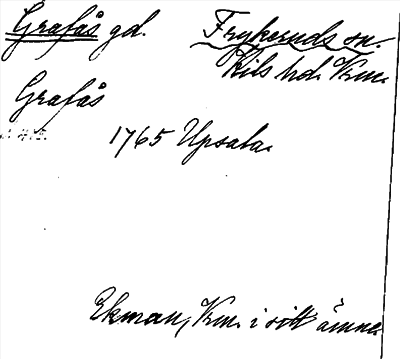 Grafås gd. Frykeruds sn.
Kils hd. Vrm.
Grafås
1765 Upsala.
Ekman, Vrm. i sitt ämne